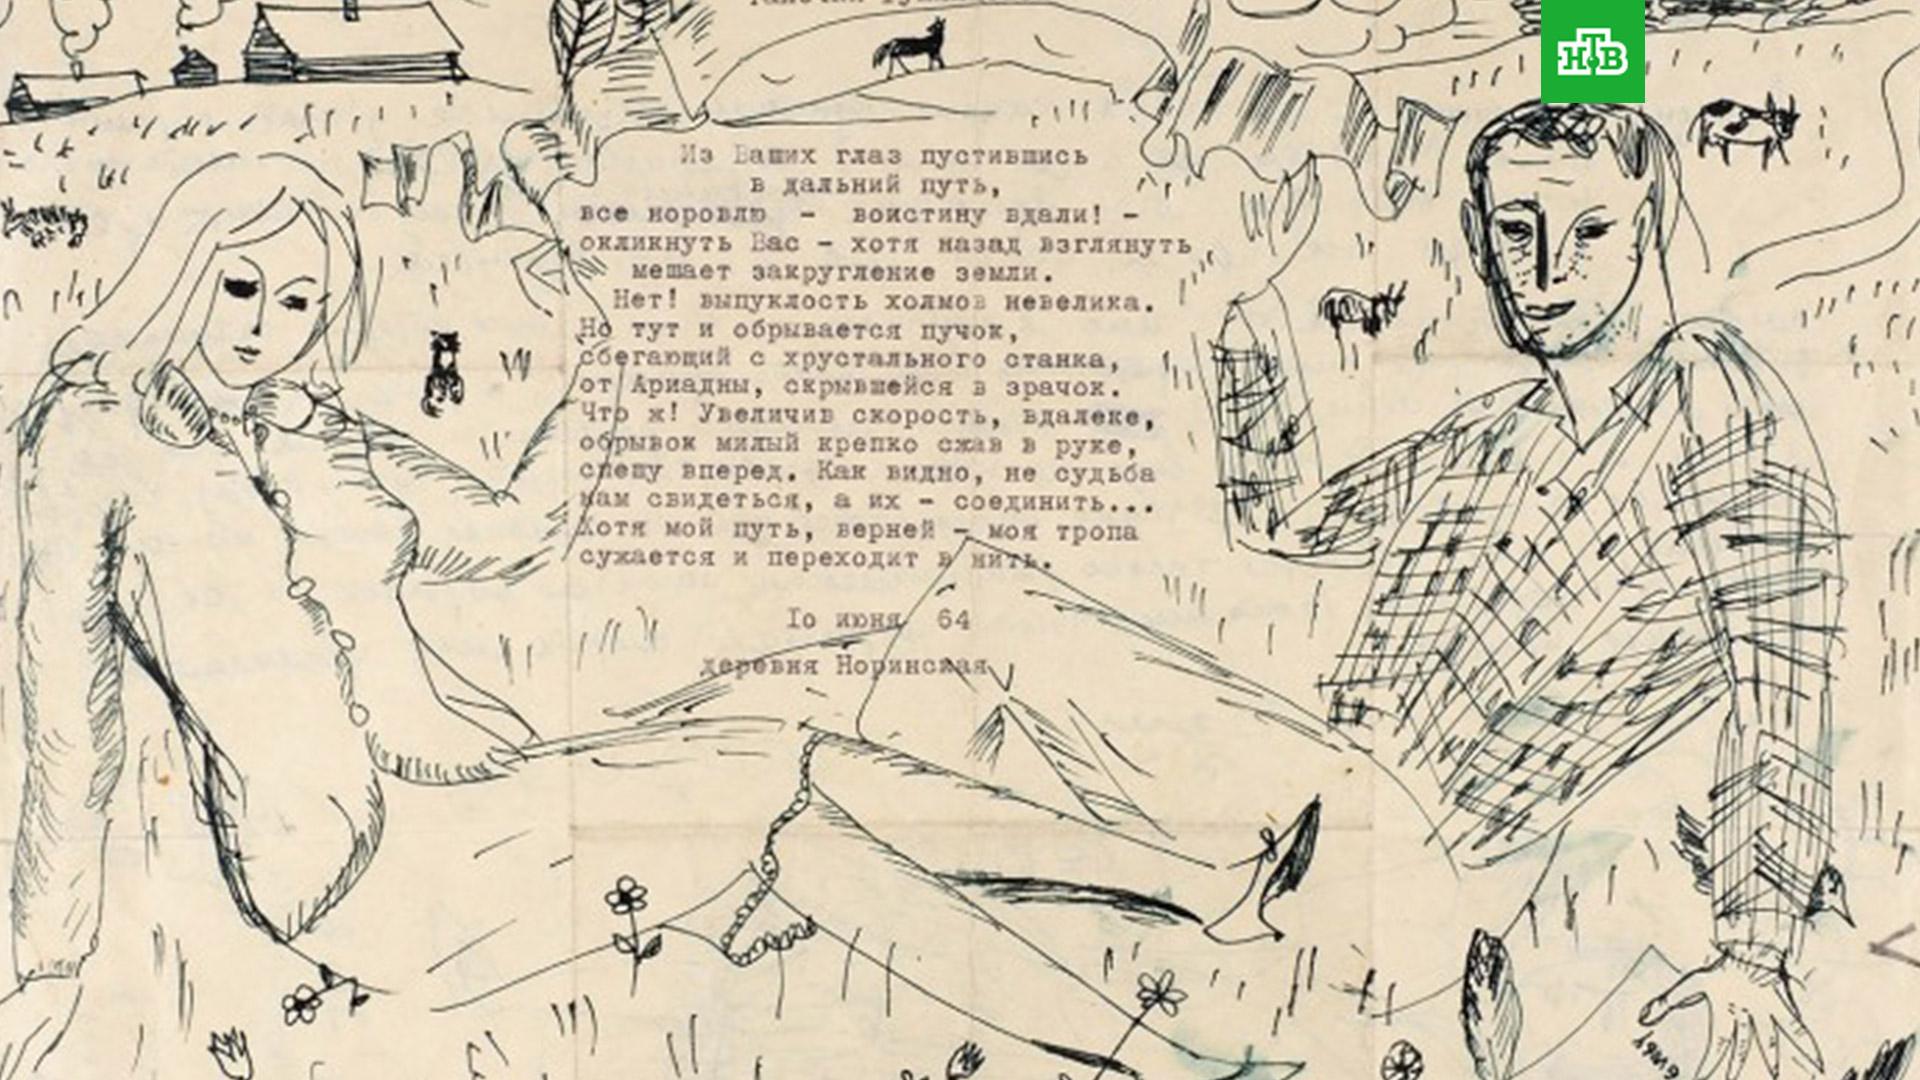 НТВ
Из Ваших глаз пустившись
в дальний путь,
все норовлю - воистину вдали! -
окликнуть Вас - хотя назад взглянуть
мешает закругление земли.
Нет! выпуклость холмов невелика.
Но тут и обрывается пучок,
сбегающий с хрустального станка,
от Ариадны, скрывшейся в зрачок.
Что ж! Увеличив скорость, вдалеке,
обрывок милый крепко сжав в руке,
спешу вперед. Как видно, не судьба
нам свидеться, а их - соединить...
Хотя мой путь, верней - моя тропа
сужается и переходит в нить.
Iо июня 64
деревня Норинская